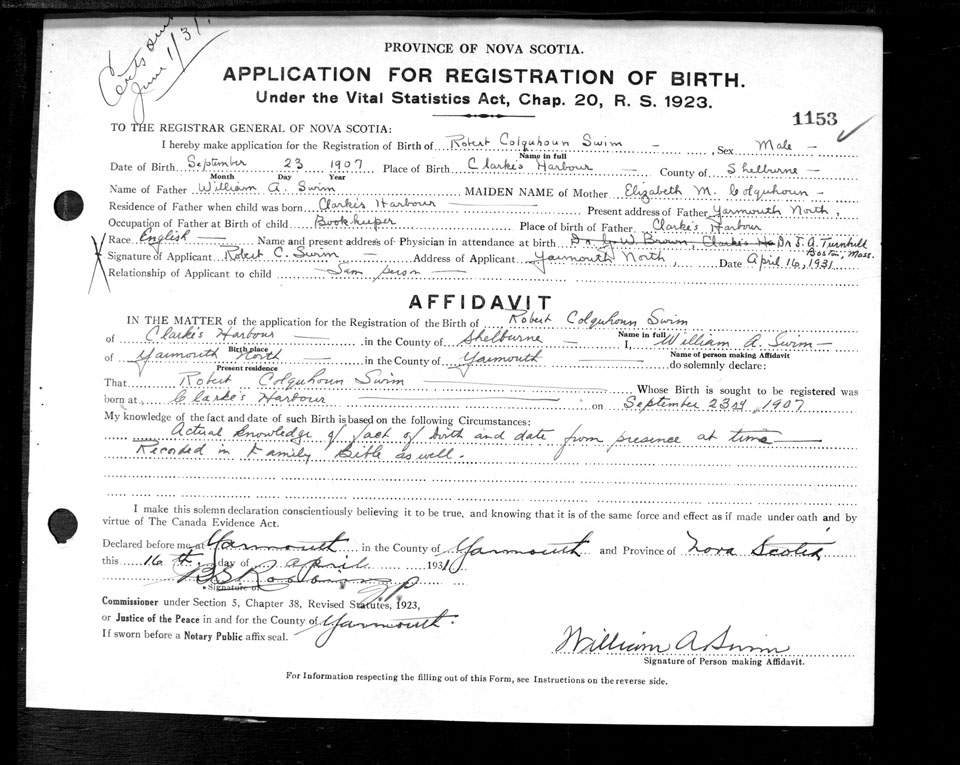 Certs
June 1/31
PROVINCE OF NOVA SCOTIA.
APPLICATION FOR REGISTRATION OF BIRTH.
Under the Vital Statistics Act, Chap. 20, R. S. 1923.
1153
TO THE REGISTRAR GENERAL OF NOVA SCOTIA:
I hereby make application for the Registration of Birth of Robert Colquhoun Swim , Sex Male
Name in full
Date of Birth September 23 1907 Place of Birth Clarke's Harbour County of Shelburne
Month Day Year
Name of Father William A. Swim MAIDEN NAME of Mother Elizabeth M. Colquhoun
Residence of Father when child was born Clarke's Harbour Present address of Father Yarmouth North,
Occupation of Father at Birth of child Bookkeeper Place of birth of Father Clarke's Harbour
Race English Name and present address of Physician in attendance at birth Dr W. Brown Clarke's Ha Dr J. A. Turnbull
Boston, Mass.
Signature of Applicant Robert C. Swim Address of Applicant Yarmouth North, Date April 16, 1931
Relationship of Applicant to child Same person
AFFIDAVIT
IN THE MATTER of the application for the Registration of the Birth of Robert Colquhoun Swim
Name in full
of Clarke's Harbour in the County of Shelburne I, William A. Swim
Birth place Name of person making Affidavit
of Yarmouth North in the County of Yarmouth do solemnly declare:
Present residence
That Robert Colquhoun Swim Whose Birth is sought to be registered was
born at Clarke's Harbour on September 23rd, 1907
My knowledge of the fact and date of such Birth is based on the following Circumstances:
Actual knowledge of fact of birth and date from presence at time
Recorded in Family Bible as well.
I make this solemn declaration conscientiously believing it to be true, and knowing that it is of the same force and effect as if made under oath and by
virtue of The Canada Evidence Act.
Declared before me at Yarmouth in the County of Yarmouth and Province of Nova Scotia
this 16th day of April 1931
Signature of
Commissioner under Section 5, Chapter 38, Revised Statutes, 1923,
or Justice of the Peace in and for the County of Yarmouth.
If sworn before a Notary Public affix seal.
William A Swim
Signature of Person making Affidavit.
For Information respecting the filling out of this Form, see Instructions on the reverse side.